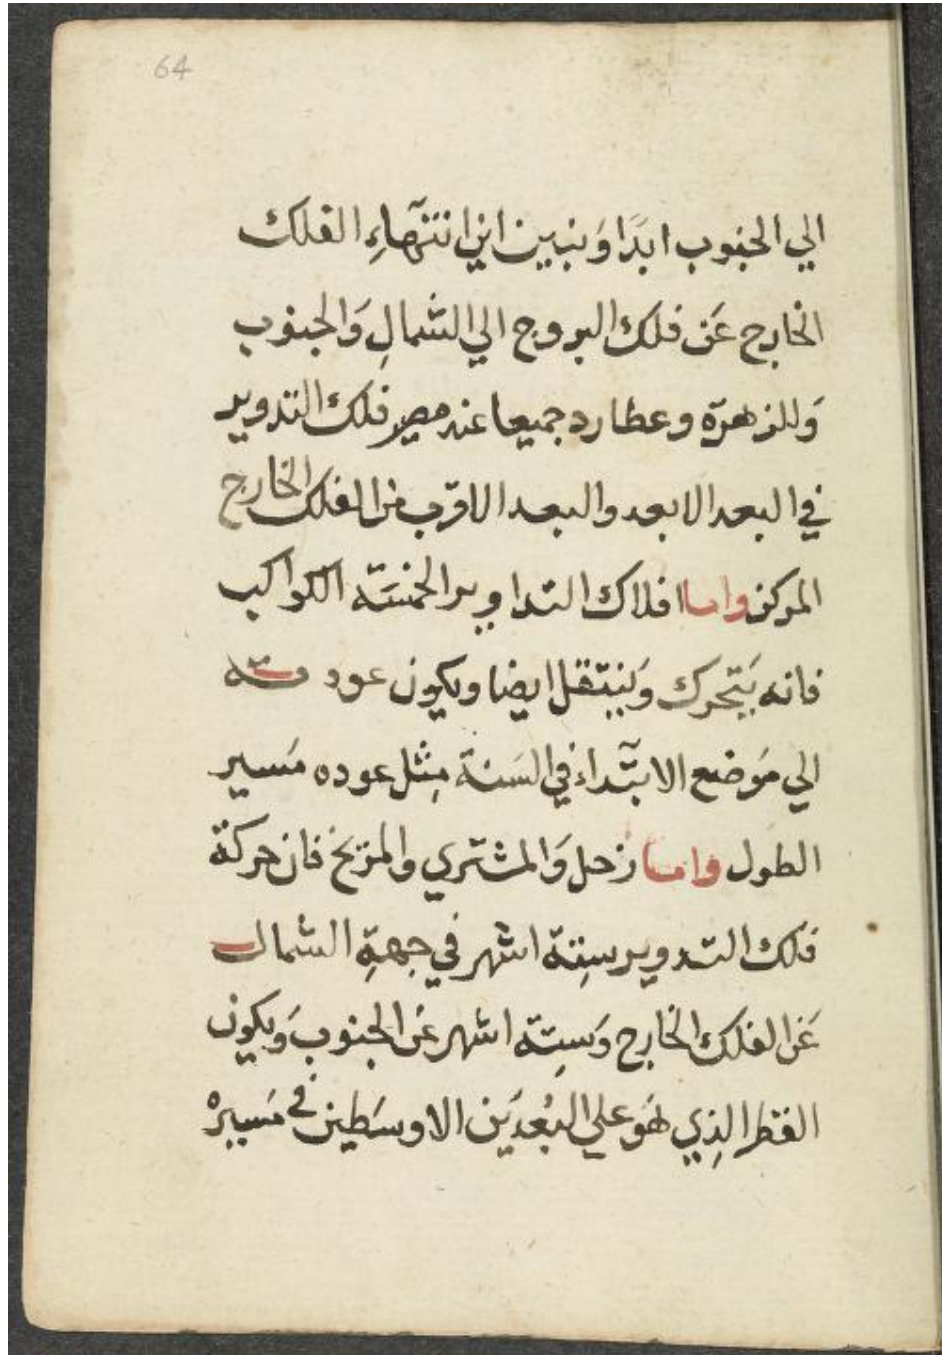 64
الي الجنوب ابدًا وَنبين اين انتهآءِ الفلك
الخارج عَن فلك البروج الي الشمالِ وَالجنوب
وَللزهرَة وعطارد جميعا عند مصير فلك التدوير
في البعد الابعد والبعد الاقرب من الفلك الخارج
المركز واما افلاك التداوير الخمسَة الكواكب
فانه يَتحرك وَينتقل ايضا ويكون عود
الي مَوضع الابتدآء في السَنة مِثل عوده مَسير
الطول واما زحل وَالمشتري والمريخ فان حركة
فلك التدوير سِتة اشهر في جهةِ الشمال
عَن الفلك الخارج وَسِتة اشهر عَن الجنوب وَيكون
القطر الذِي هَو علي البُعدَين الاوسَطين في مَسيره